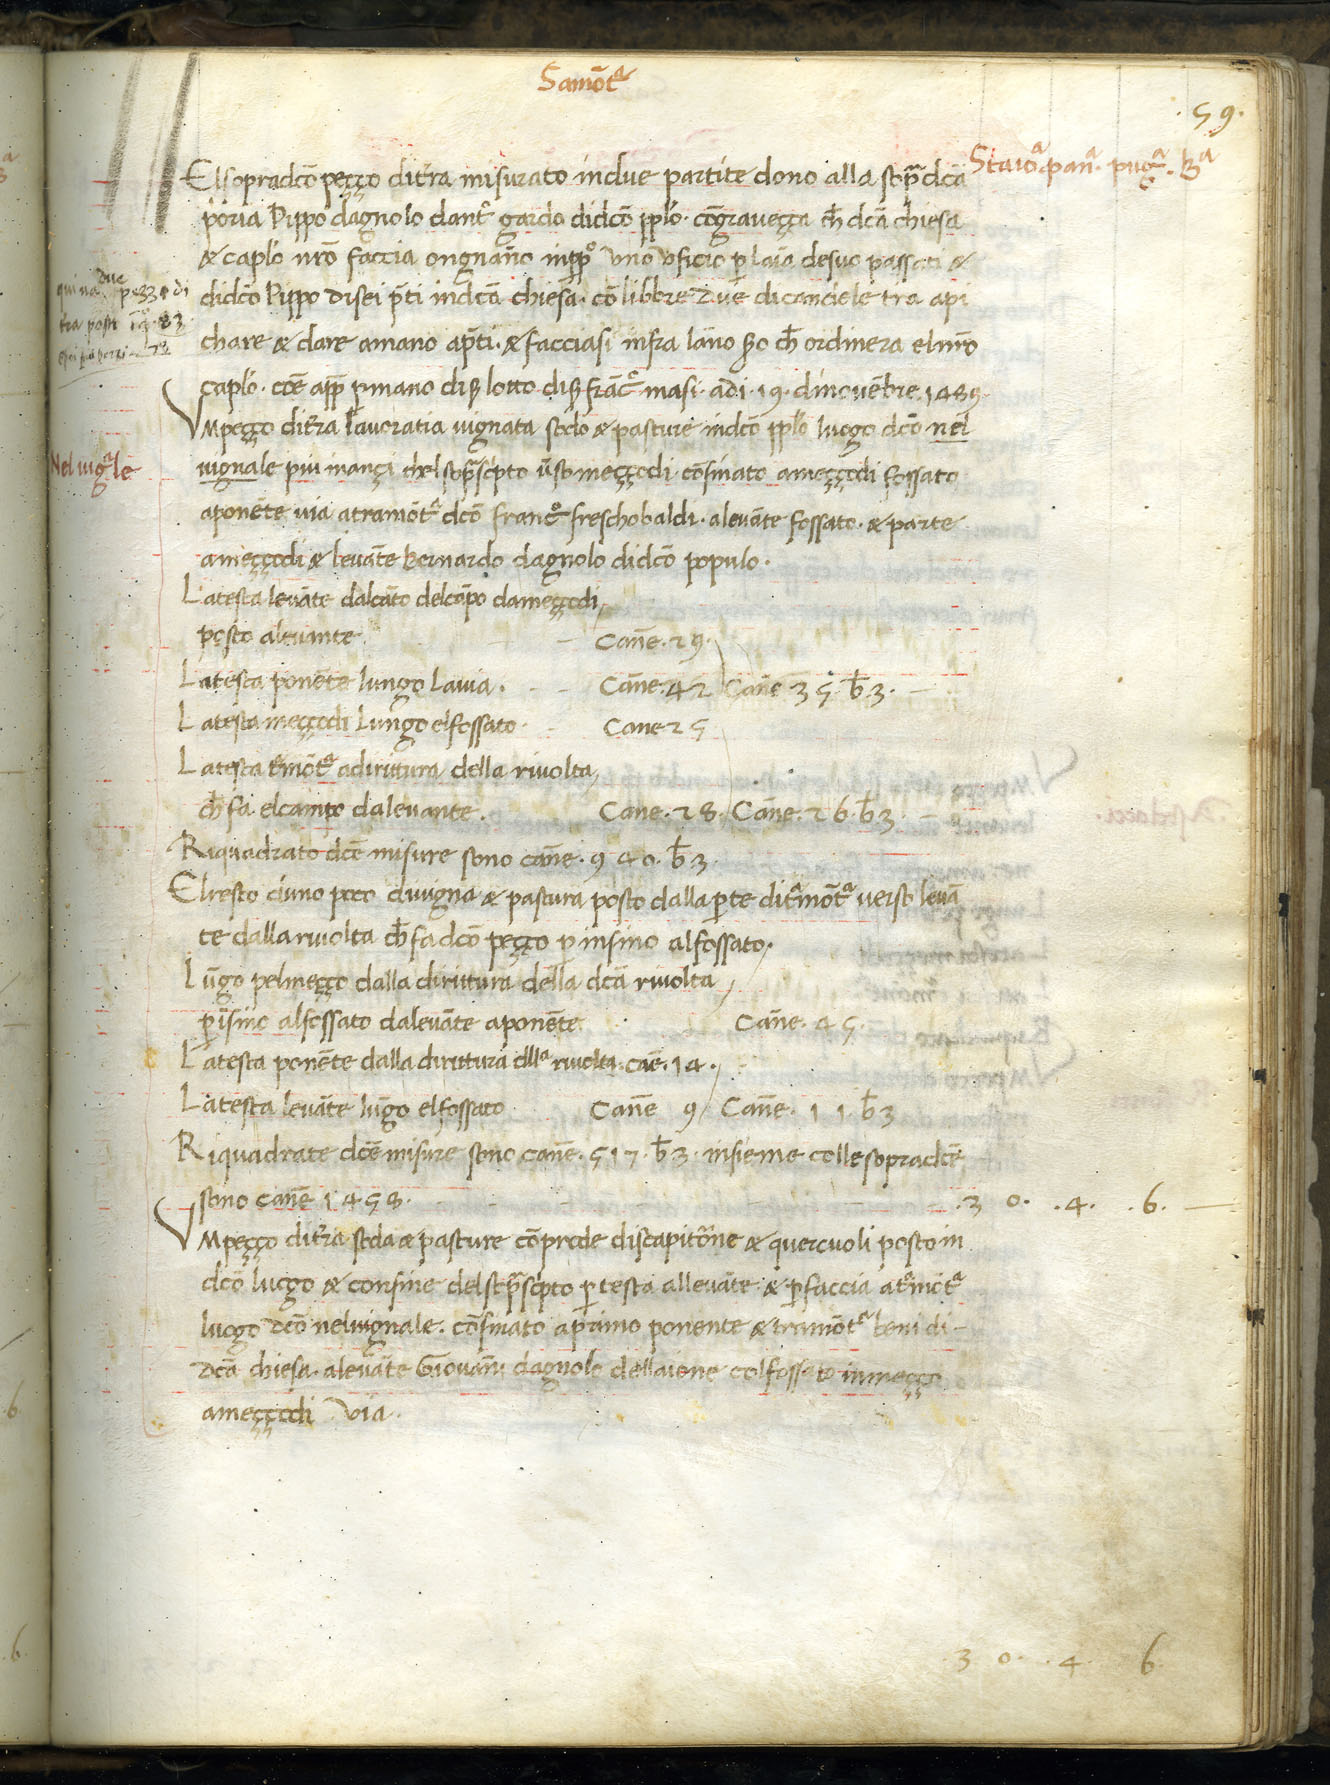 Samōtᵃ
.59.
Staioᵃ. panᵃ. pugᵃ. Bᵃ
El sopradcō peçço ditr̄a misurato indue partite dono alla sop̄ᵃdcā
p̄oria Pippo dagnolo dantᵒ gardo didcō pplō. cō gravezça ch̄ dcā chiesa
& caplō nr̄o faccia ongnāno in pp̄ᵒ uno uficio p laīa desuo passati &
didcō Pippo di sei p̄ti in dcā chiesa. cō libbre due di candele tra api
chare & dare amano ap̄ti. & facciasi infra lāno ch̄ ordinera el nr̄o
caplō. cōe app̄ p mano di ẞ lotto di ẞ frācᵒ masi. adi. 19. di novēbre. 1489.
due
qui na pezzo di
Vmpeçço ditr̄a lavoratia vignata soda & pasture indcō pplō luogo dcō nel
Nel vigᵃle
vignale piu inançi chel sop̄ᵃscpto ūso meççodi. cōfinato ameççodi fossato
aponēte via atramōtᵃ dcō francᵒ freschobaldi. alevāte fossato. & parte
ameççodi & levāte bernardo dagnolo didcō populo.
La testa levāte dalcāto delcāpo dameççodi
posto altinte Cañe. 29.
La testa ponēte lungo lavia. Cañe. 42 Cañe 35. b̄. 3.
La testa meççodi lungo elfossato Cane 25
La testa trmōtᵃ adirittura della rivolta
ch̄ fa. elcanto dalevante. Cane. 28. Cañe. 26. b̄ 3.
Riquadrato dcē misure sono cañe. 940. b̄. 3.
El resto duno poco divigna & pastura posto dalla pte ditᵃmōtᵃ verso levā
te dalla rivolta ch̄ fa dcō peçço p insino alfossato.
Lūgo pelmeçço dalla dirittura della dcā rivolta
p īsino alfossato dalevāte aponēte Cañe. 45.
La testa ponēte dalla dirittura dllᵃ rivolta. cañe. 14.
La testa levāte lūgo elfossato Cañe 9 Cañe. 11 b̄ 3
Riquadrate dcē misure sono cañe. 517. b̄ 3. insieme colle sopradcē
sono cañe 1458. .30. .4. .6.
Vmpeçço ditr̄a soda & pasture cōprede discapitōne & quercuoli posto in
dcō luogo & confine delsop̄ᵃscpto p testa allevāte. & p faccia atᵃmōtᵃ
luogo dcō nelvignale. cōfinato aprimo ponente & tramōtᵃ beni di
dcā chiesa. alevāte Giovañi dagnolo dellaione colfossato inmeçço
ameççodi via.
30. .4. 6.